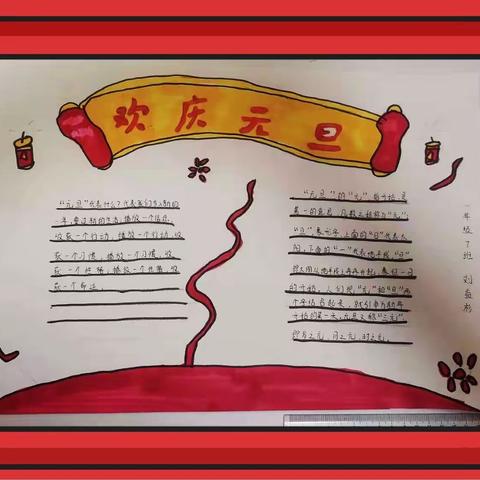 欢庆元旦
"元旦"代表什么?代表我们步入新的
一年,要过新的生活,播放一个信念,
收获一个行动,播放一个行动,收
获一个习惯,播放一个习惯,收
获一个性格,播放一个性格,收
获一个命运。
"元旦"的"元",指开始,是
第一的意思,凡数之始称为"元";
"旦",象形字,上面的"日"代表太
阳,下面的"一"代表地平线。"旦"
即太阳从地平线上冉冉升起,象征一日
的开始。人们把"元"和"旦"两
个字结合起来,就引申为新年
开始的第一天。元旦又称"三元",
即岁之元、月之元、时之元。
一年级7班